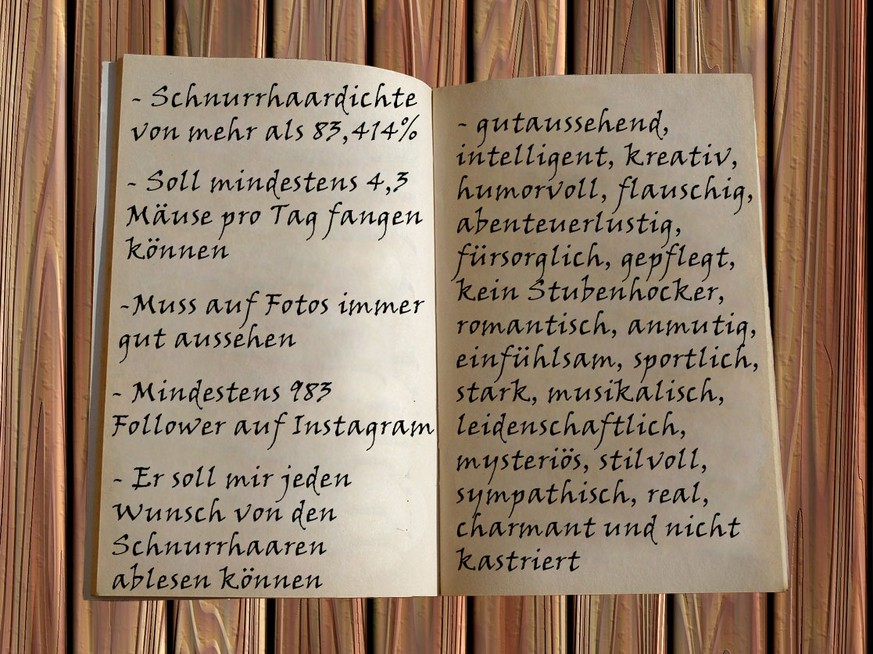 - Schnurrhaardichte
von mehr als 83,414%
- Soll mindestens 4,3
Mäuse pro Tag fangen
können
-Muss auf Fotos immer
gut aussehen
- Mindestens 983
Follower auf Instagram
- Er soll mir jeden
Wunsch von den
Schnurrhaaren
ablesen können
- gutaussehend,
intelligent, kreativ,
humorvoll, flauschig,
abenteuerlustig,
fürsorglich, gepflegt,
kein Stubenhocker,
romantisch, anmutig,
einfühlsam, sportlich,
stark, musikalisch,
leidenschaftlich,
mysteriös, stilvoll,
sympathisch, real,
charmant und nicht
kastriert